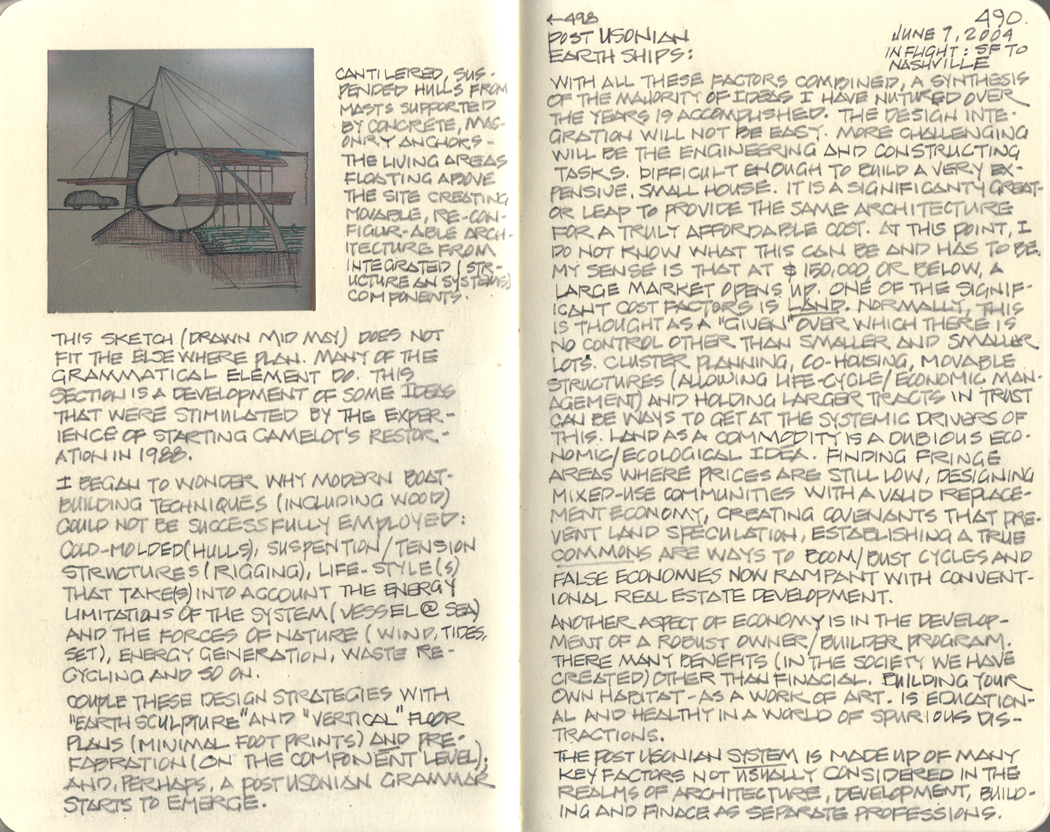 CANTILEIRED, SUS-
PENDED HULLS FROM
MASTS SUPPORTED
BY CONCRETE, MAS-
ONRY ANCHORS -
THE LIVING AREAS
FLOATING ABOVE
THE SITE CREATING
MOVABLE, RE-CON-
FIGUR-ABLE ARCH-
ITECTURE FROM
INTEGRATED (STR-
UCTURE AN SYSTEMS)
COMPONENTS.
THIS SKETCH (DRAWN MID MAY) DOES NOT
FIT THE ELSEWHERE PLAN. MANY OF THE
GRAMMATICAL ELEMENT DO. THIS
SECTION IS A DEVELOPMENT OF SOME IDEAS
THAT WERE STIMULATED BY THE EXPER-
IENCE OF STARTING CAMELOT'S RESTOR-
ATION IN 1988.
I BEGAN TO WONDER WHY MODERN BOAT-
BUILDING TECHNIQUES (INCLUDING WOOD)
COULD NOT BE SUCCESSFULLY EMPLOYED:
COLD-MOLDED (HULLS), SUSPENTION/TENSION
STRUCTURES (RIGGING), LIFE-STYLE(S)
THAT TAKE(S) INTO ACCOUNT THE ENERGY
LIMITATIONS OF THE SYSTEM (VESSEL @ SEA)
AND THE FORCES OF NATURE (WIND, TIDES,
SET), ENERGY GENERATION, WASTE RE-
CYCLING AND SO ON.
COUPLE THESE DESIGN STRATEGIES WITH
"EARTH SCULPTURE" AND "VERTICAL" FLOOR
PLANS (MINIMAL FOOT PRINTS) AND PRE-
FABRATION (ON THE COMPONENT LEVEL);
AND, PERHAPS, A POST USONIAN GRAMMAR
STARTS TO EMERGE.
←498
490.
POST USONIAN
EARTH SHIPS:
JUNE 7, 2004
IN FLIGHT: SF TO
NASHVILLE
WITH ALL THESE FACTORS COMBINED, A SYNTHESIS
OF THE MAJORITY OF IDEAS I HAVE NUTURED OVER
THE YEARS IS ACCOMPLISHED. THE DESIGN INTE-
GRATION WILL NOT BE EASY. MORE CHALLENGING
WILL BE THE ENGINEERING AND CONSTRUCTING
TASKS. DIFFICULT ENOUGH TO BUILD A VERY EX-
PENSIVE, SMALL HOUSE. IT IS A SIGNIFICANTY GREAT-
OR LEAP TO PROVIDE THE SAME ARCHITECTURE
FOR A TRULY AFFORDABLE COST. AT THIS POINT, I
DO NOT KNOW WHAT THIS CAN BE AND HAS TO BE.
MY SENSE IS THAT AT $150,000 OR BELOW, A
LARGE MARKET OPENS UP. ONE OF THE SIGNIF-
ICANT COST FACTORS IS LAND. NORMALLY, THIS
IS THOUGHT AS A "GIVEN" OVER WHICH THERE IS
NO CONTROL OTHER THAN SMALLER AND SMALLER
LOTS. CLUSTER PLANNING, CO-HOUSING, MOVABLE
STRUCTURES (ALLOWING LIFE-CYCLE/ECONOMIC MAN-
AGEMENT) AND HOLDING LARGER TRACTS IN TRUST
CAN BE WAYS TO GET AT THE SYSTEMIC DRIVERS OF
THIS. LAND AS A COMMODITY IS A DUBIOUS ECO-
NOMIC/ECOLOGICAL IDEA. FINDING FRINGE
AREAS WHERE PRICES ARE STILL LOW, DESIGNING
MIXED-USE COMMUNITIES WITH A VALID REPLACE-
MENT ECONOMY, CREATING COVENANTS THAT PRE-
VENT LAND SPECULATION, ESTABLISHING A TRUE
COMMONS ARE WAYS TO BOOM/BUST CYCLES AND
FALSE ECONOMIES NOW RAMPANT WITH CONVENT-
IONAL REAL ESTATE DEVELOPMENT.
ANOTHER ASPECT OF ECONOMY IS IN THE DEVELOP-
MENT OF A ROBUST OWNER/BUILDER PROGRAM.
THERE MANY BENEFITS (IN THE SOCIETY WE HAVE
CREATED) OTHER THAN FINACIAL. BUILDING YOUR
OWN HABITAT - AS A WORK OF ART. IS EDUCATION-
AL AND HEALTHY IN A WORLD OF SPURIOUS DIS-
TRACTIONS.
THE POST USONIAN SYSTEM IS MADE UP OF MANY
KEY FACTORS NOT USUALLY CONSIDERED IN THE
REALMS OF ARCHITECTURE, DEVELOPMENT, BUILD-
ING AND FINACE AS SEPARATE PROFESSIONS.